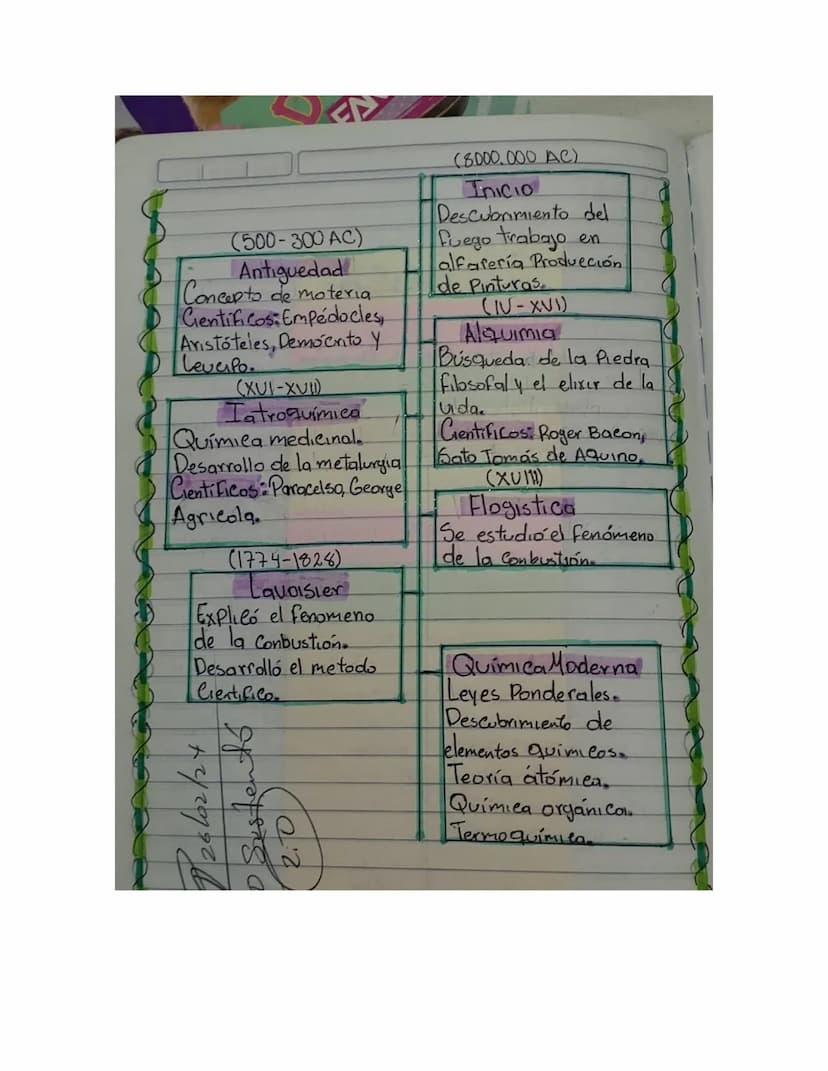 (8000.000 AC)
Inicio
Descubrimiento del
fuego trabajo en
alfarería Producción
de Pinturas.
(500-300 AC)
Antiguedad
Concepto de materia
Científicos: Empédocles,
Aristóteles, Demócrito y
Leucipo.
(IV-XVI)
Alquimia
Búsqueda de la Piedra
filosofal y el elixir de la
vida.
Científicos: Roger Bacon,
Sato Tomás de Aquino.
(XVI-XVII)
Iatroquímica
Química medicinal.
Desarrollo de la metalurgia
Científicos: Paracelso, George
Agricola.
(XVIII)
Flogistica
Se estudió el fenómeno
de la Conbustión.
(1774-1828)
Lavoisier
Explicó el fenomeno
de la Conbustión.
Desarrolló el metodo
Científico.
Química Moderna
Leyes Ponderales.
Descubrimiento de
elementos químicos.
Teoría átómica.
Química orgánica.
Termoquímica.
26/02/24
Sustentó
2.0